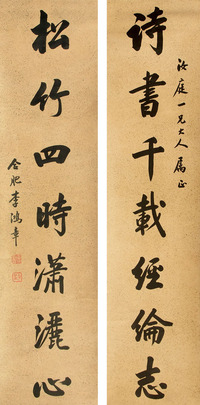 詩書千載經綸志
汝庭一兄大人屬正
松竹四時瀟灑心
合肥李鴻章